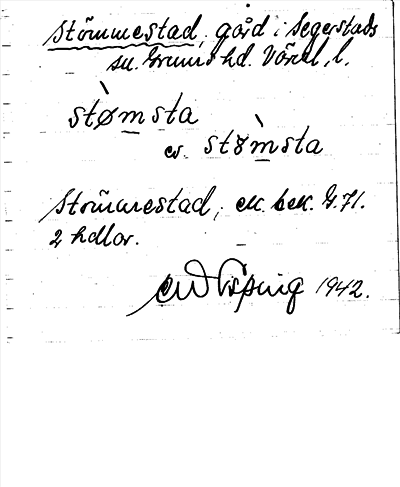 Stömmestad, gård i Segerstads
sn. Grums hd. Värml. l.
stø̀m̲sta
el. stɤ̀m̲sta
Strömmestad, ek. bek. G. 71.
2 hdlar.
1942.